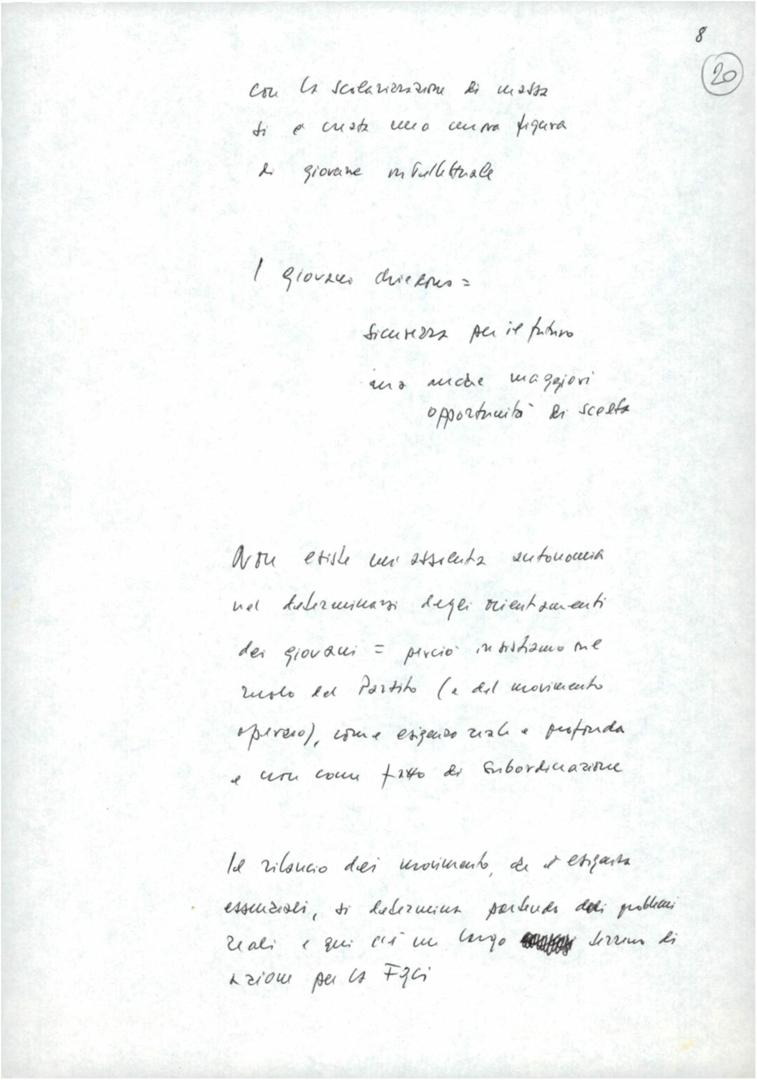 8
20
con la scolarizzazione di massa
si è creata una nuova figura
di giovane intellettuale
I giovani chiedono =
sicurezza per il futuro
ma anche maggiori
opportunità di scelta
Non esiste un'assoluta autonomia
nel determinarsi degli orientamenti
dei giovani = perciò insistiamo nel
ruolo del Partito (e del movimento
operaio), come esigenza reale e profonda
e non come fatto di subordinazione
Il rilancio dei movimento, che è esigenza
essenziale, si determina partendo dai problemi
reali e qui c'è un largo terreno di
azione per la Fgci